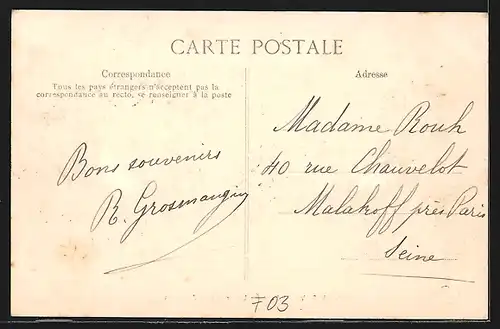 CARTE POSTALE
Correspondance
Tous les pays étrangers n'acceptent pas la
correspondance au recto, se renseigner à la poste
Bons souvenirs
R. Grosmangin
Adresse
Madame Rouh
40 rue Chauvelot
Malakoff près Paris
Seine
F03